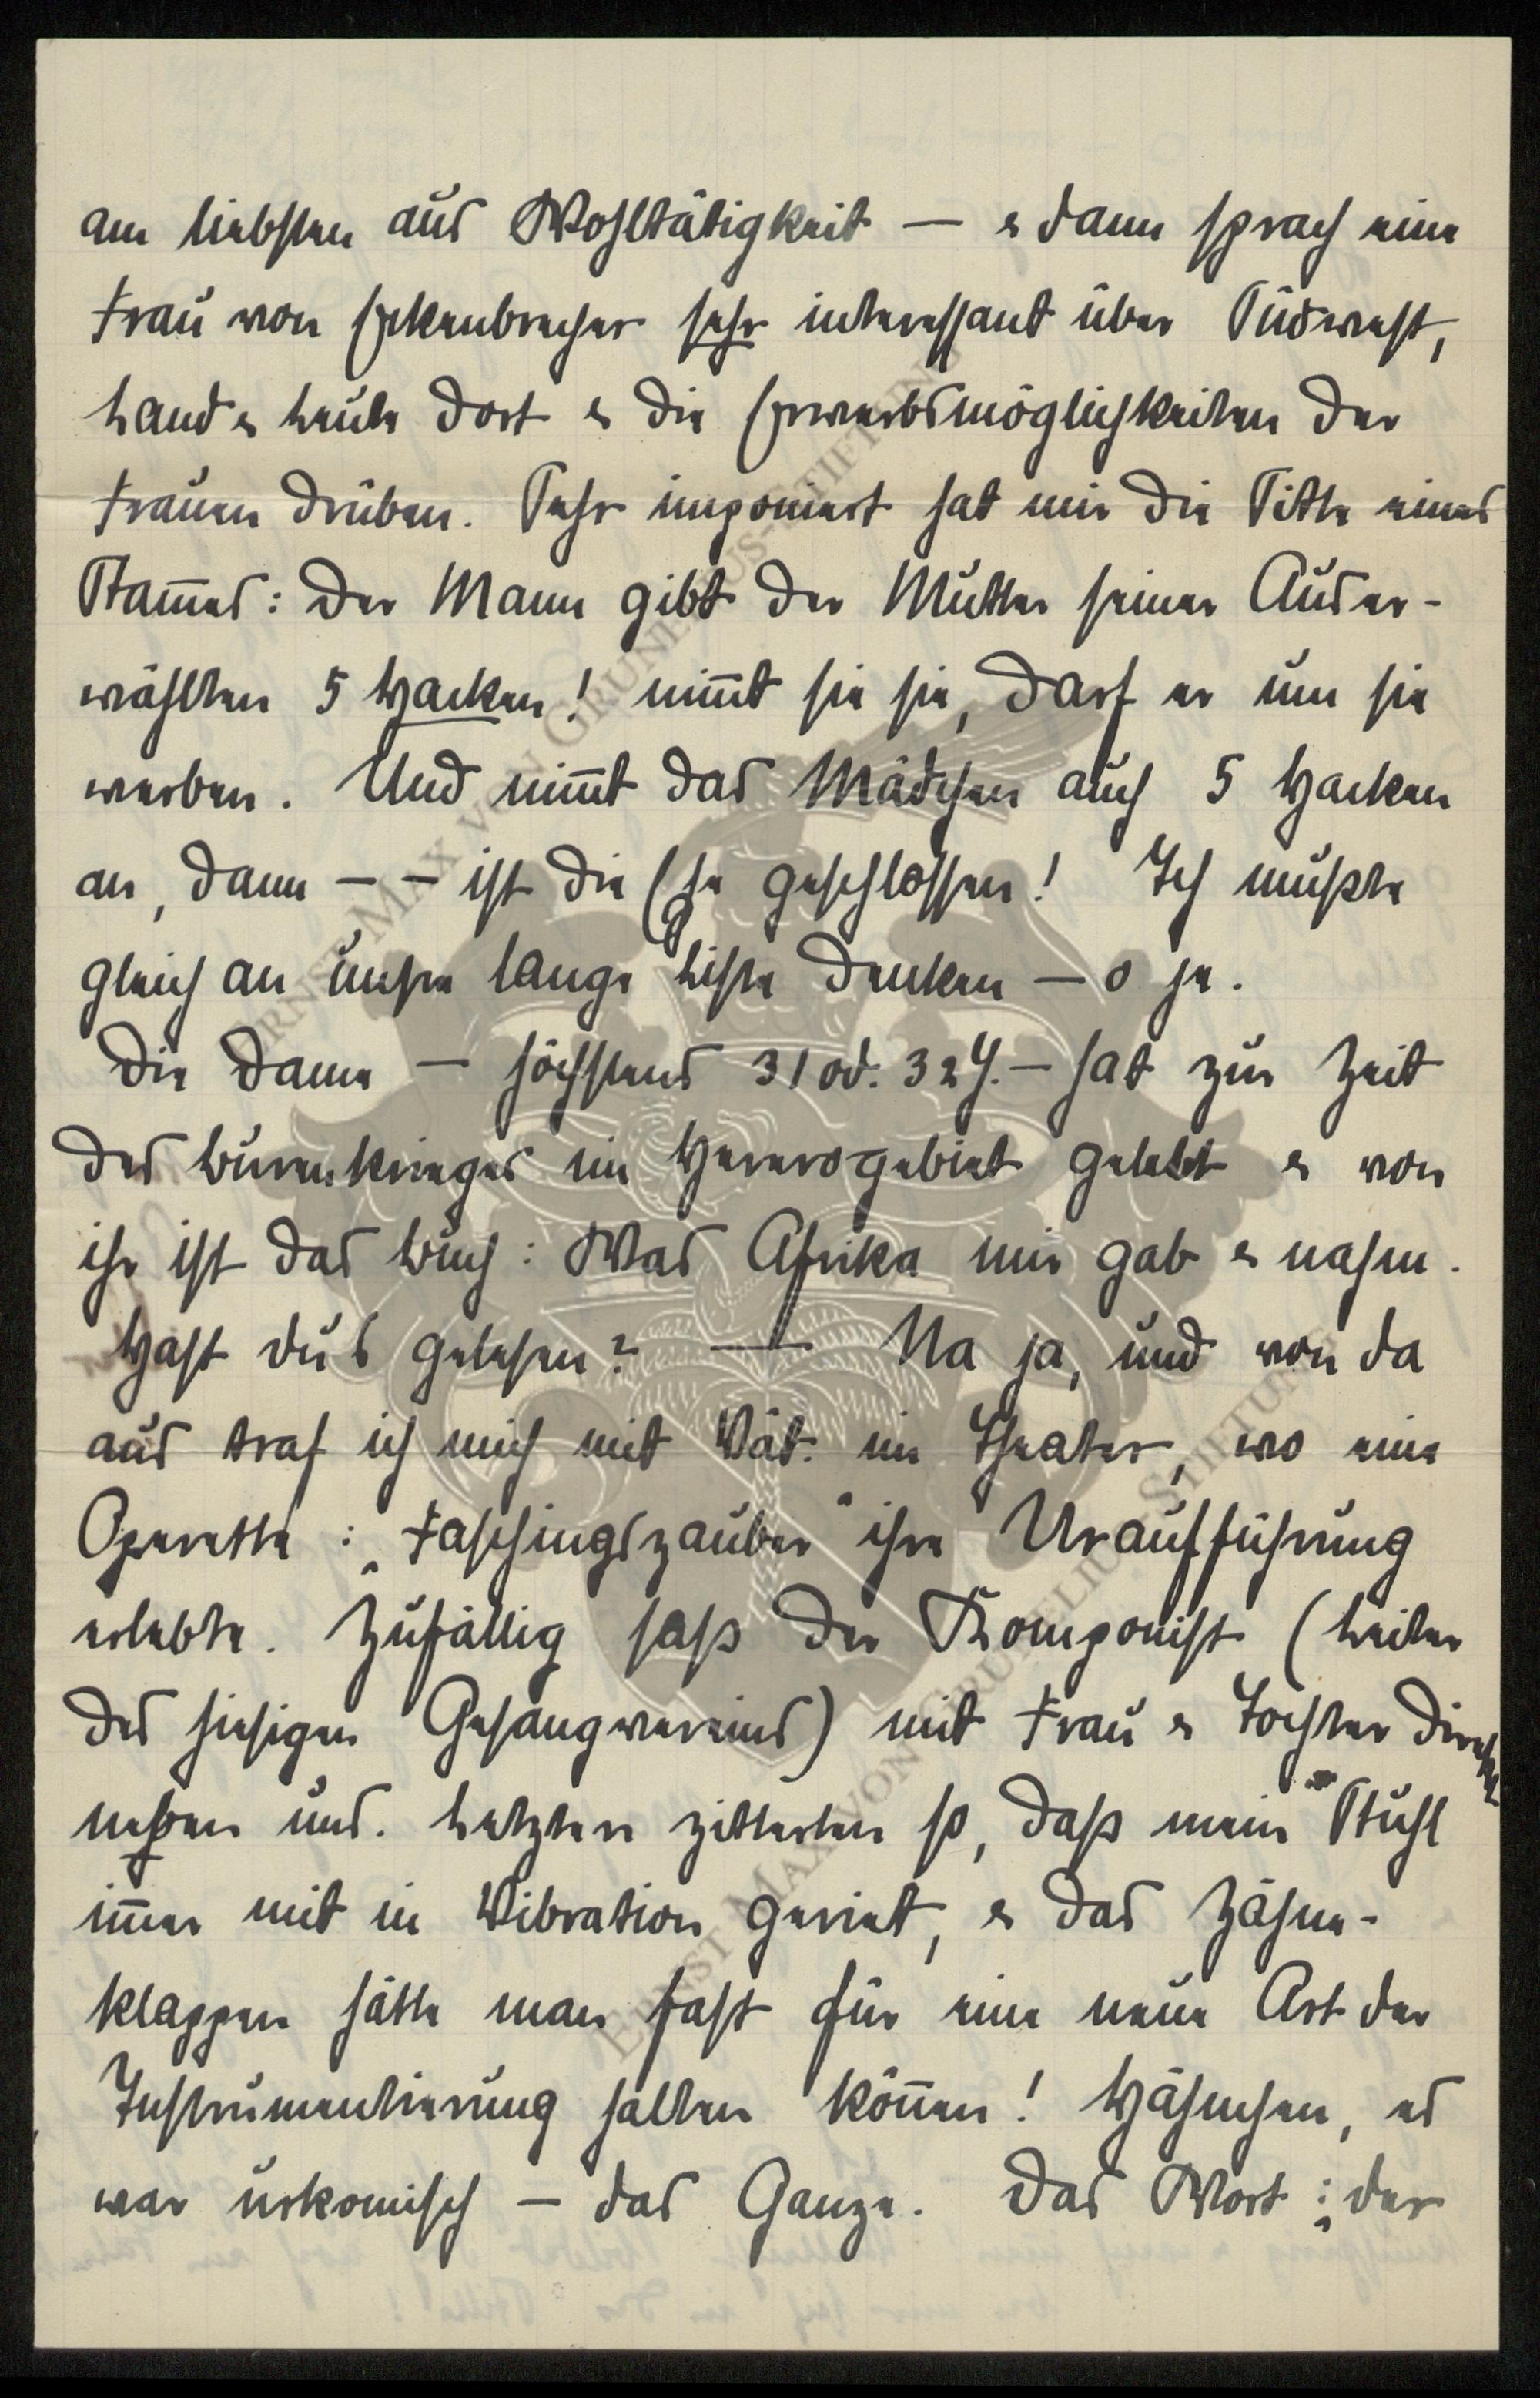 am liebsten aus Wohltätigkeit — & dann sprach eine
Frau von Eckenbrecher sehr interessant über Südwest,
Land & Leute dort & die Erwerbsmöglichkeiten der
Frauen drüben. Sehr imponiert hat mir die Sitte eines
Stam̅es: Der Mann gibt der Mutter seiner Auser-
wählten 5 Hacken! nim̅t sie sie, darf er um sie
werben. Und nim̅t das Mädchen auch 5 Hacken
an, dann – – ist die Ehe geschlossen! Ich mußte
gleich an unsre lange Liste denken — o je.
Die Dame — höchstens 31 od. 32 J. — hat zur Zeit
des Burenkrieges im Hererogebiet gelebt & von
ihr ist das Buch: Was Afrika mir gab & nahm.
Hast du's gelesen? — Na ja, und von da
aus traf ich mich mit Vät. im Theater, wo eine
Operette: „Faschingszauber" ihre Uraufführung
erlebte. Zufällig saß der Komponist (Leiter
des hiesigen Gesangvereins) mit Frau & Tochter direkt
neben uns. Letztere zitterten so, daß mein Stuhl
im̅er mit in Vibration geriet, & das Zähne-
klappen hätte man fast für eine neue Art der
Instrumentierung halten kön̅en! Hähnchen, es
war urkomisch — das Ganze. Das Wort: „der
ERNST MAX VON GRUNELIUS-STIFTUNG
ERNST MAX VON GRUNELIUS-STIFTUNG